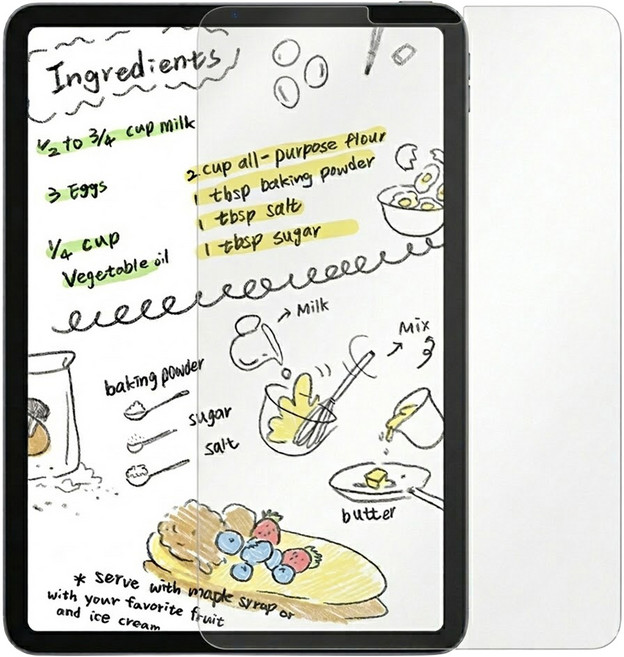 Ingredients
1/2 to 3/4 cup milk
3 Eggs
1/4 cup
Vegetable oil
2 cup all-purpose flour
1 tbsp baking powder
1 tbsp salt
1 tbsp sugar
Milk
Mix
baking powder
sugar
salt
butter
* serve with maple syrap or
with your favorite fruit
and ice cream